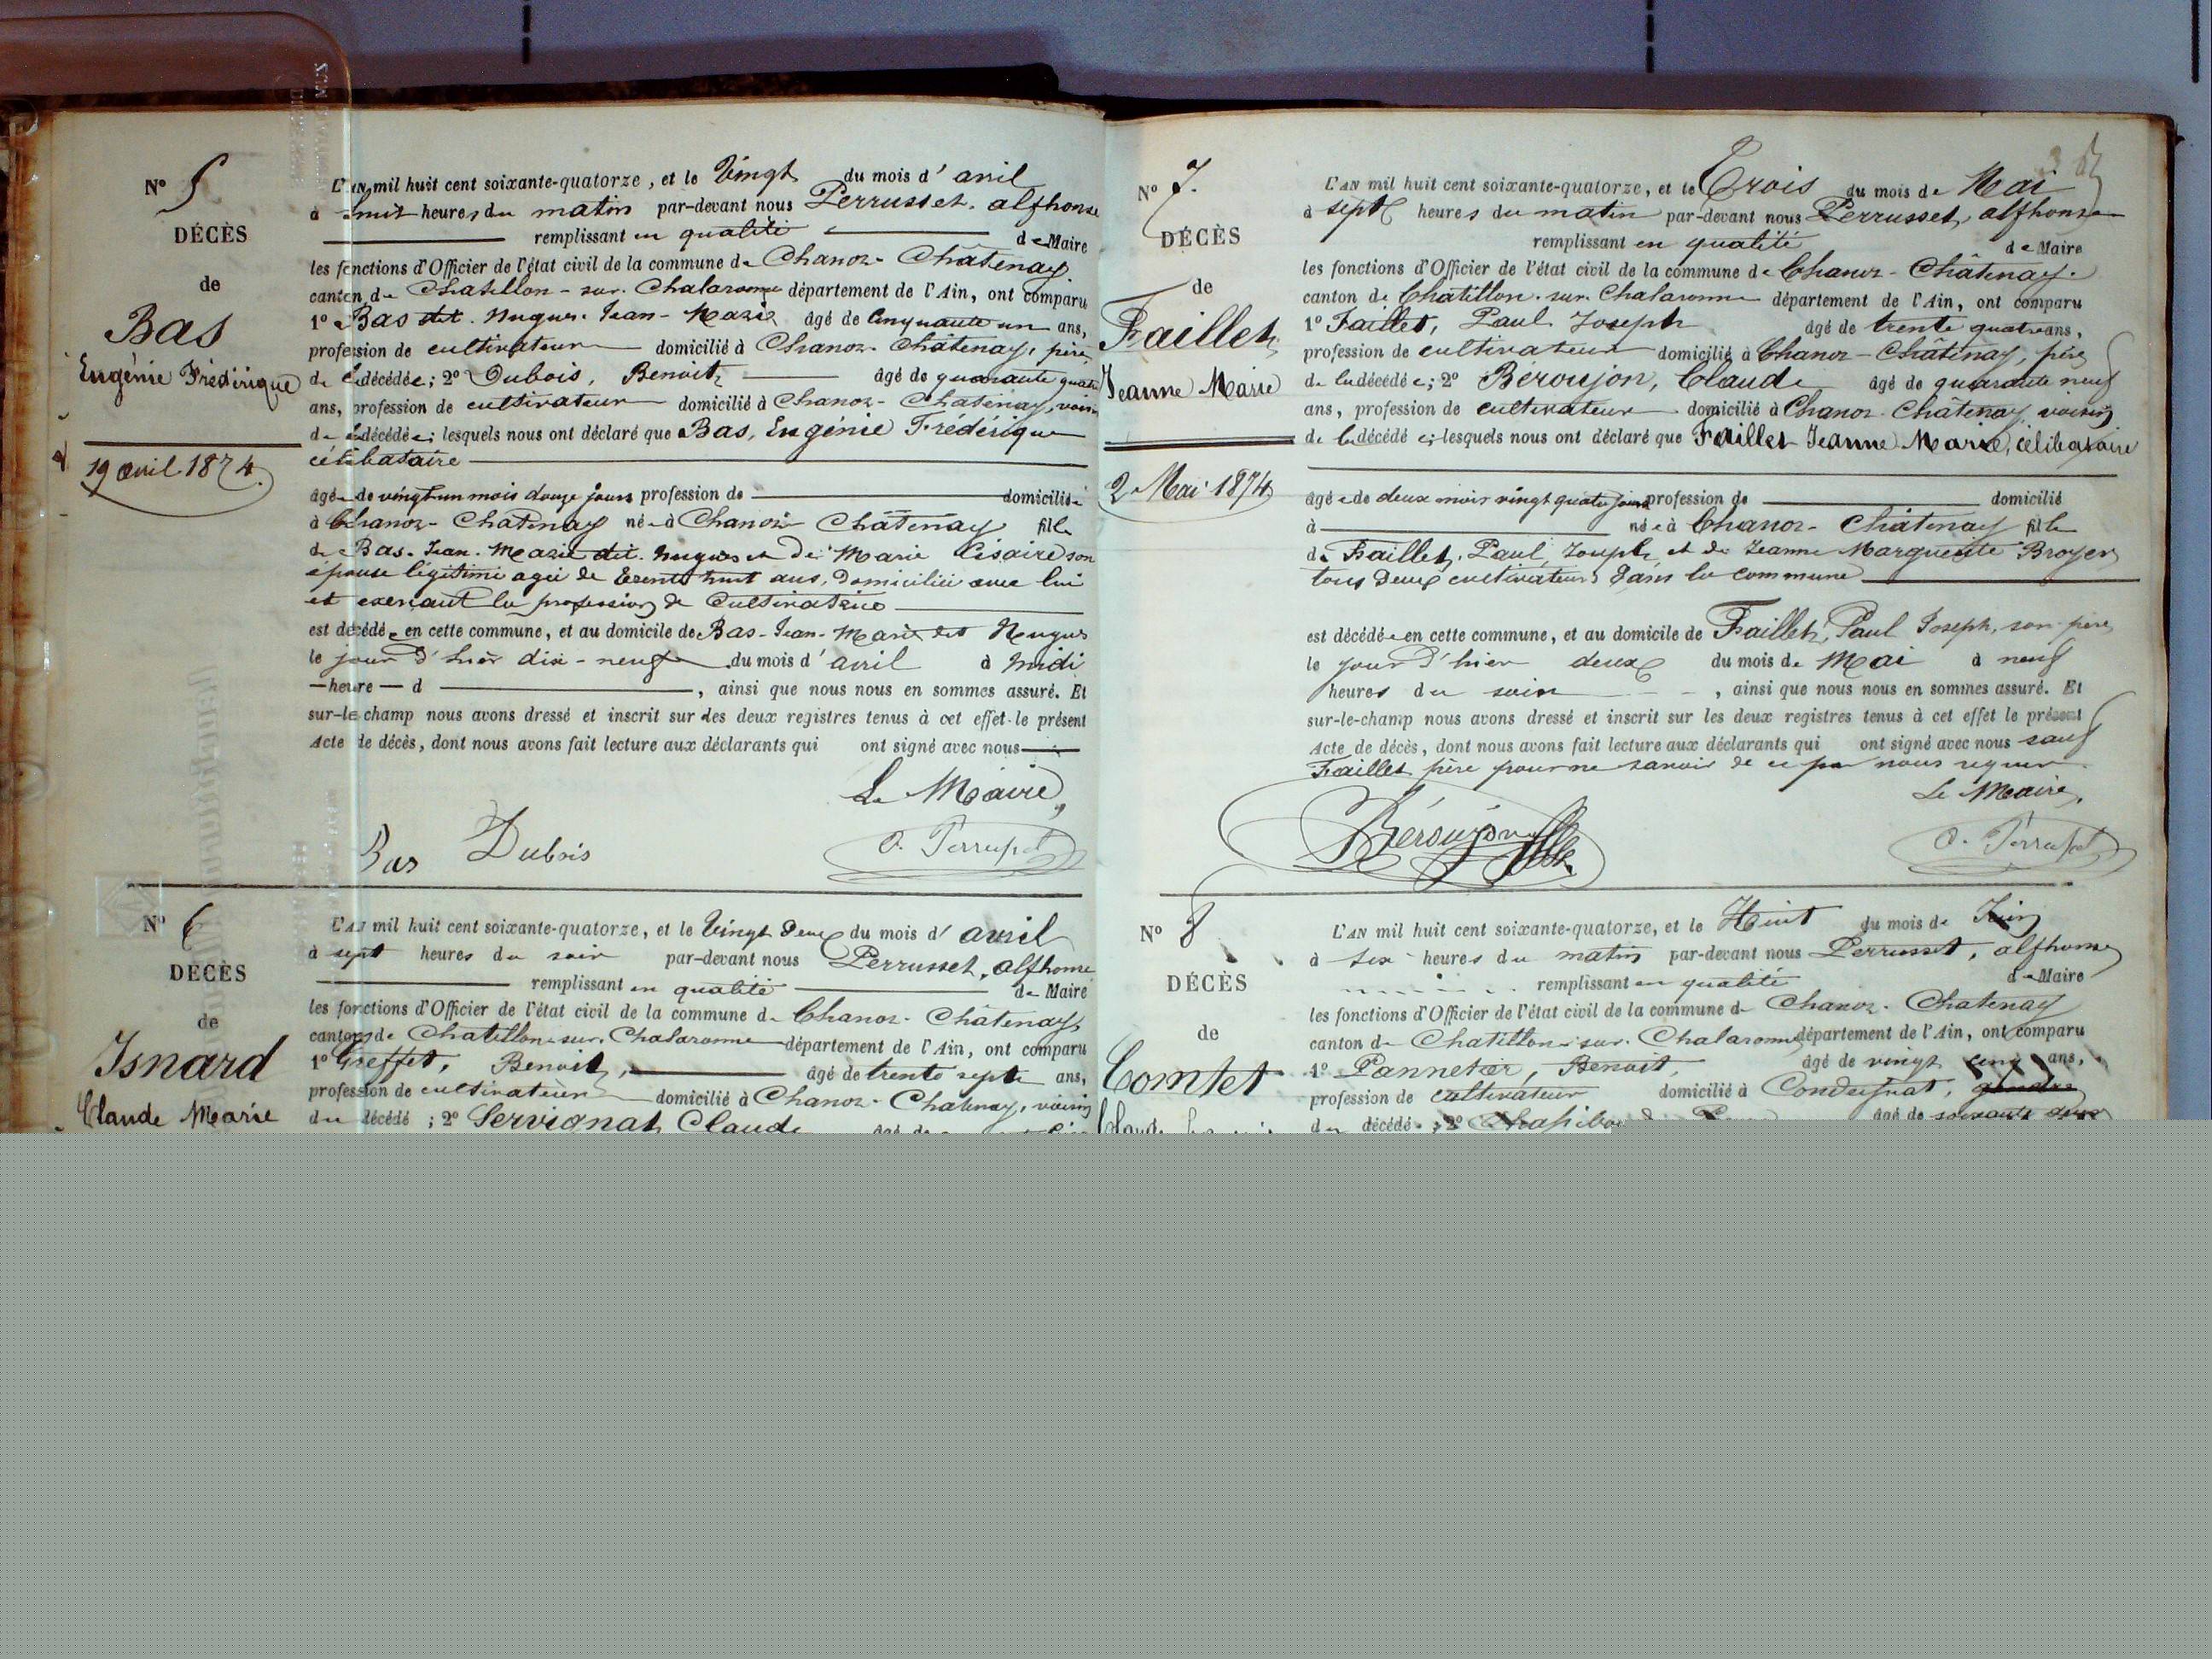 N° 5
DÉCÈS
de
Bas
Eugénie Frédérique
19 avril 1874.
L'AN mil huit cent soixante-quatorze, et le Vingt du mois d'avril
à huit heures du matin par-devant nous Perrusset, alphonse
remplissant en qualité de Maire
les fonctions d'Officier de l'état civil de la commune de Chanoz-Châtenay
canton de Chatillon-sur-Chalaronne département de l'Ain, ont comparu
1° Bas dit Nugues Jean-Marie âgé de Cinquante un ans,
profession de cultivateur domicilié à Chanoz-Châtenay, père
de la décédée; 2° Dubois, Benoit, âgé de quarante quatre
ans, profession de cultivateur domicilié à Chanoz-Châtenay, voisin
de la décédée; lesquels nous ont déclaré que Bas, Eugénie Frédérique
célibataire
âgée de vingt un mois douze jours profession de domiciliée
à Chanoz-Chatenay née à Chanoz-Châtenay fille
de Bas-Jean-Marie dit Nugues et de Marie son
épouse légitime agée de trente huit ans, domiciliée avec lui
et exerçant la profession de Cultivatrice
est décédée en cette commune, et au domicile de Bas-Jean-Marie dit Nugues
le jour d'hier dix-neuf du mois d'avril à midi
heure d , ainsi que nous nous en sommes assuré. Et
sur-le-champ nous avons dressé et inscrit sur les deux registres tenus à cet effet le présent
Acte de décès, dont nous avons fait lecture aux déclarants qui ont signé avec nous
Le Maire,
Bas Dubois A. Perrusset
N° 6
DÉCÈS
de
Isnard
Claude Marie
L'AN mil huit cent soixante-quatorze, et le Vingt deux du mois d'avril
à sept heures du soir par-devant nous Perrusset, alphonse
remplissant en qualité de Maire
les fonctions d'Officier de l'état civil de la commune de Chanoz-Châtenay
canton de Chatillon-sur-Chalaronne département de l'Ain, ont comparu
1° Greffet, Benoit, âgé de trente sept ans,
profession de cultivateur domicilié à Chanoz-Chatenay, voisin
du décédé; 2° Servignat Claude âgé de
N° 7.
DÉCÈS
de
Faillet
Jeanne Marie
2 Mai 1874
L'AN mil huit cent soixante-quatorze, et le Trois du mois de Mai
à sept heures du matin par-devant nous Perrusset, alphonse
remplissant en qualité de Maire
les fonctions d'Officier de l'état civil de la commune de Chanoz-Châtenay.
canton de Chatillon-sur-Chalaronne département de l'Ain, ont comparu
1° Faillet, Paul Joseph âgé de trente quatre ans,
profession de cultivateur domicilié à Chanoz-Châtenay, père
de la décédée; 2° Beroujon, Claude âgé de quarante neuf
ans, profession de cultivateur domicilié à Chanoz-Châtenay voisin
de la décédée; lesquels nous ont déclaré que Faillet Jeanne Marie, célibataire
âgée de deux mois vingt quatre jours profession de domicilié
à née à Chanoz-Châtenay fille
de Faillet, Paul, Joseph et de Jeanne Marguerite Broyer
tous deux cultivateurs dans la commune
est décédée en cette commune, et au domicile de Faillet, Paul Joseph, son père
le jour d'hier deux du mois de Mai à neuf
heures du soir , ainsi que nous nous en sommes assuré. Et
sur-le-champ nous avons dressé et inscrit sur les deux registres tenus à cet effet le présent
Acte de décès, dont nous avons fait lecture aux déclarants qui ont signé avec nous sauf
Faillet père pour ne savoir de ce par nous requis
Le Maire,
Béroujon A. Perrusset
N° 8
DÉCÈS
de
Comtet
Claude
L'AN mil huit cent soixante-quatorze, et le Huit du mois de Juin
à six heures du matin par-devant nous Perrusset, alphonse
remplissant en qualité de Maire
les fonctions d'Officier de l'état civil de la commune de Chanoz-Chatenay
canton de Chatillon-sur-Chalaronne département de l'Ain, ont comparu
1° Pannetier, Benoit, âgé de vingt cinq ans,
profession de cultivateur domicilié à Condeissiat, gendre
du décédé; 2° âgé de soixante deux